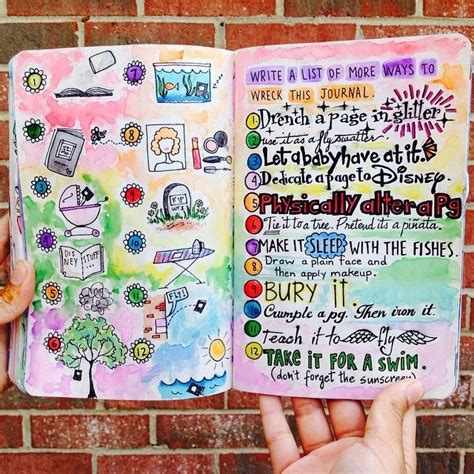 1
7
2
8
3
9
RIP
4
10
DIS STUFF...
NEY
5
11
FLY!
6
12
WRITE A LIST OF MORE WAYS TO
WRECK THIS JOURNAL.
1 Drench a page in glitter
2 use it as a fly swatter.
3 Let a baby have at it.
4 Dedicate a page to DISNEY.
5 Physically alter a pg
6 Tie it to a tree. Pretend its a piñata.
7 MAKE IT SLEEP WITH THE FISHES.
8 Draw a plain face and
then apply makeup.
9 BURY it.
10 Crumple a pg. Then iron it.
11 Teach it to fly
12 TAKE IT FOR A SWIM.
(don't forget the sunscreen)